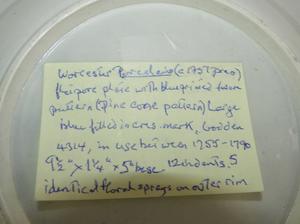 Worcester Porcelain (c 1770)
plate with blue printed
pattern (pine cone pattern) large
blue filled in cres. mark, Godden
4314, in use between 1755-1790
9½" x 1¼" x 5" base 12 indents, 5
identical floral sprays on outer rim